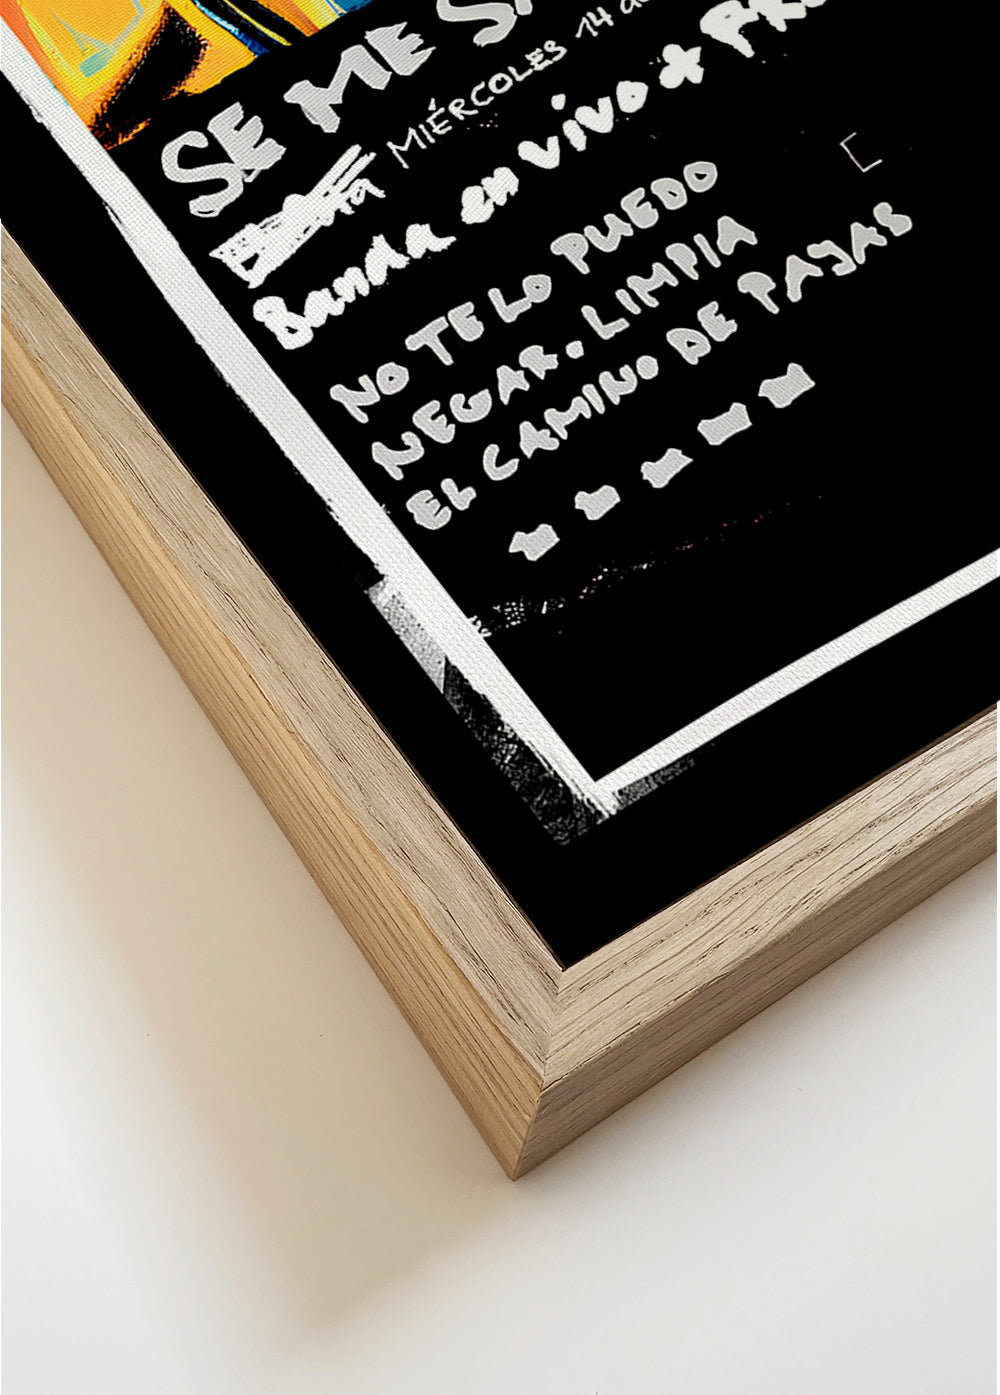 SE ME
MIÉRCOLES 14
Banda en vivo +
NO TE LO PUEDO
NEGAR. LIMPIA
EL CAMINO DE PAJAS